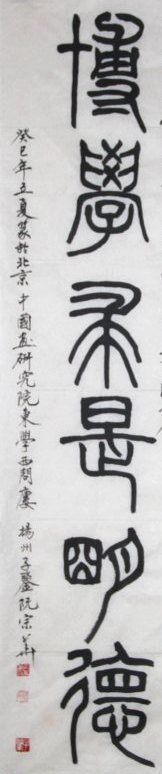 博學求是明德
癸巳年立夏篆於北京中國画研究院東學西問廔揚州子鑒阮宗華